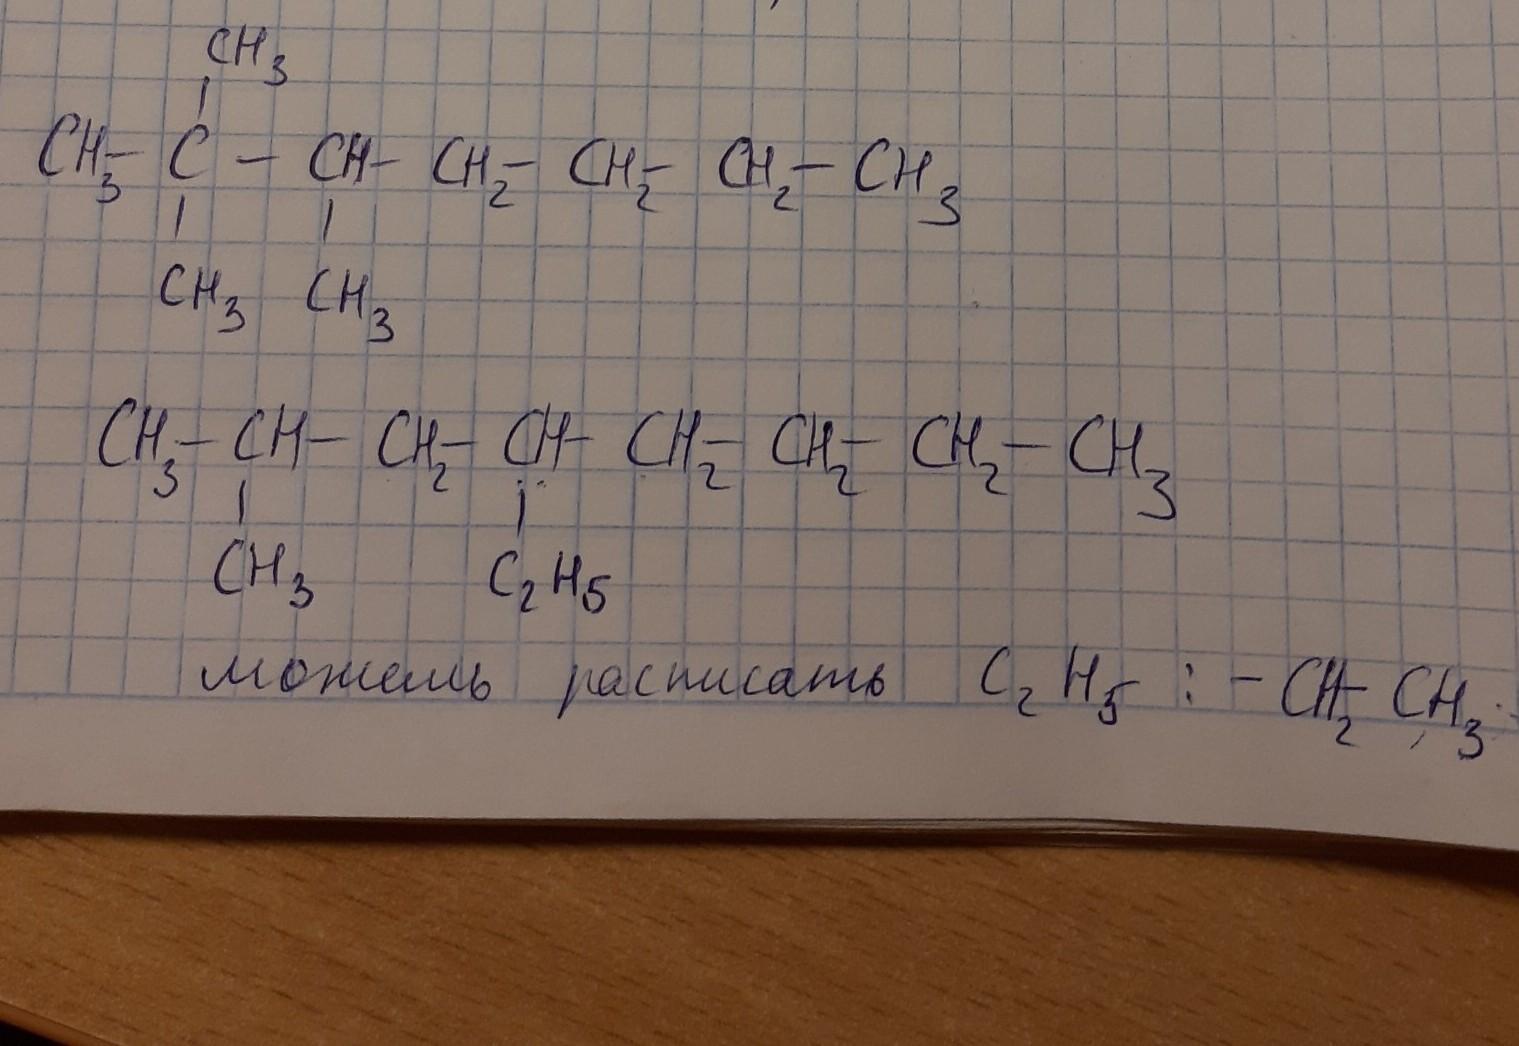 CH3
CH3 - C - CH - CH2 - CH2 - CH2 - CH3
CH3 CH3
CH3 - CH - CH2 - CH - CH2 - CH2 - CH2 - CH3
CH3 C2H5
можешь расписать C2H5 : - CH2 - CH3